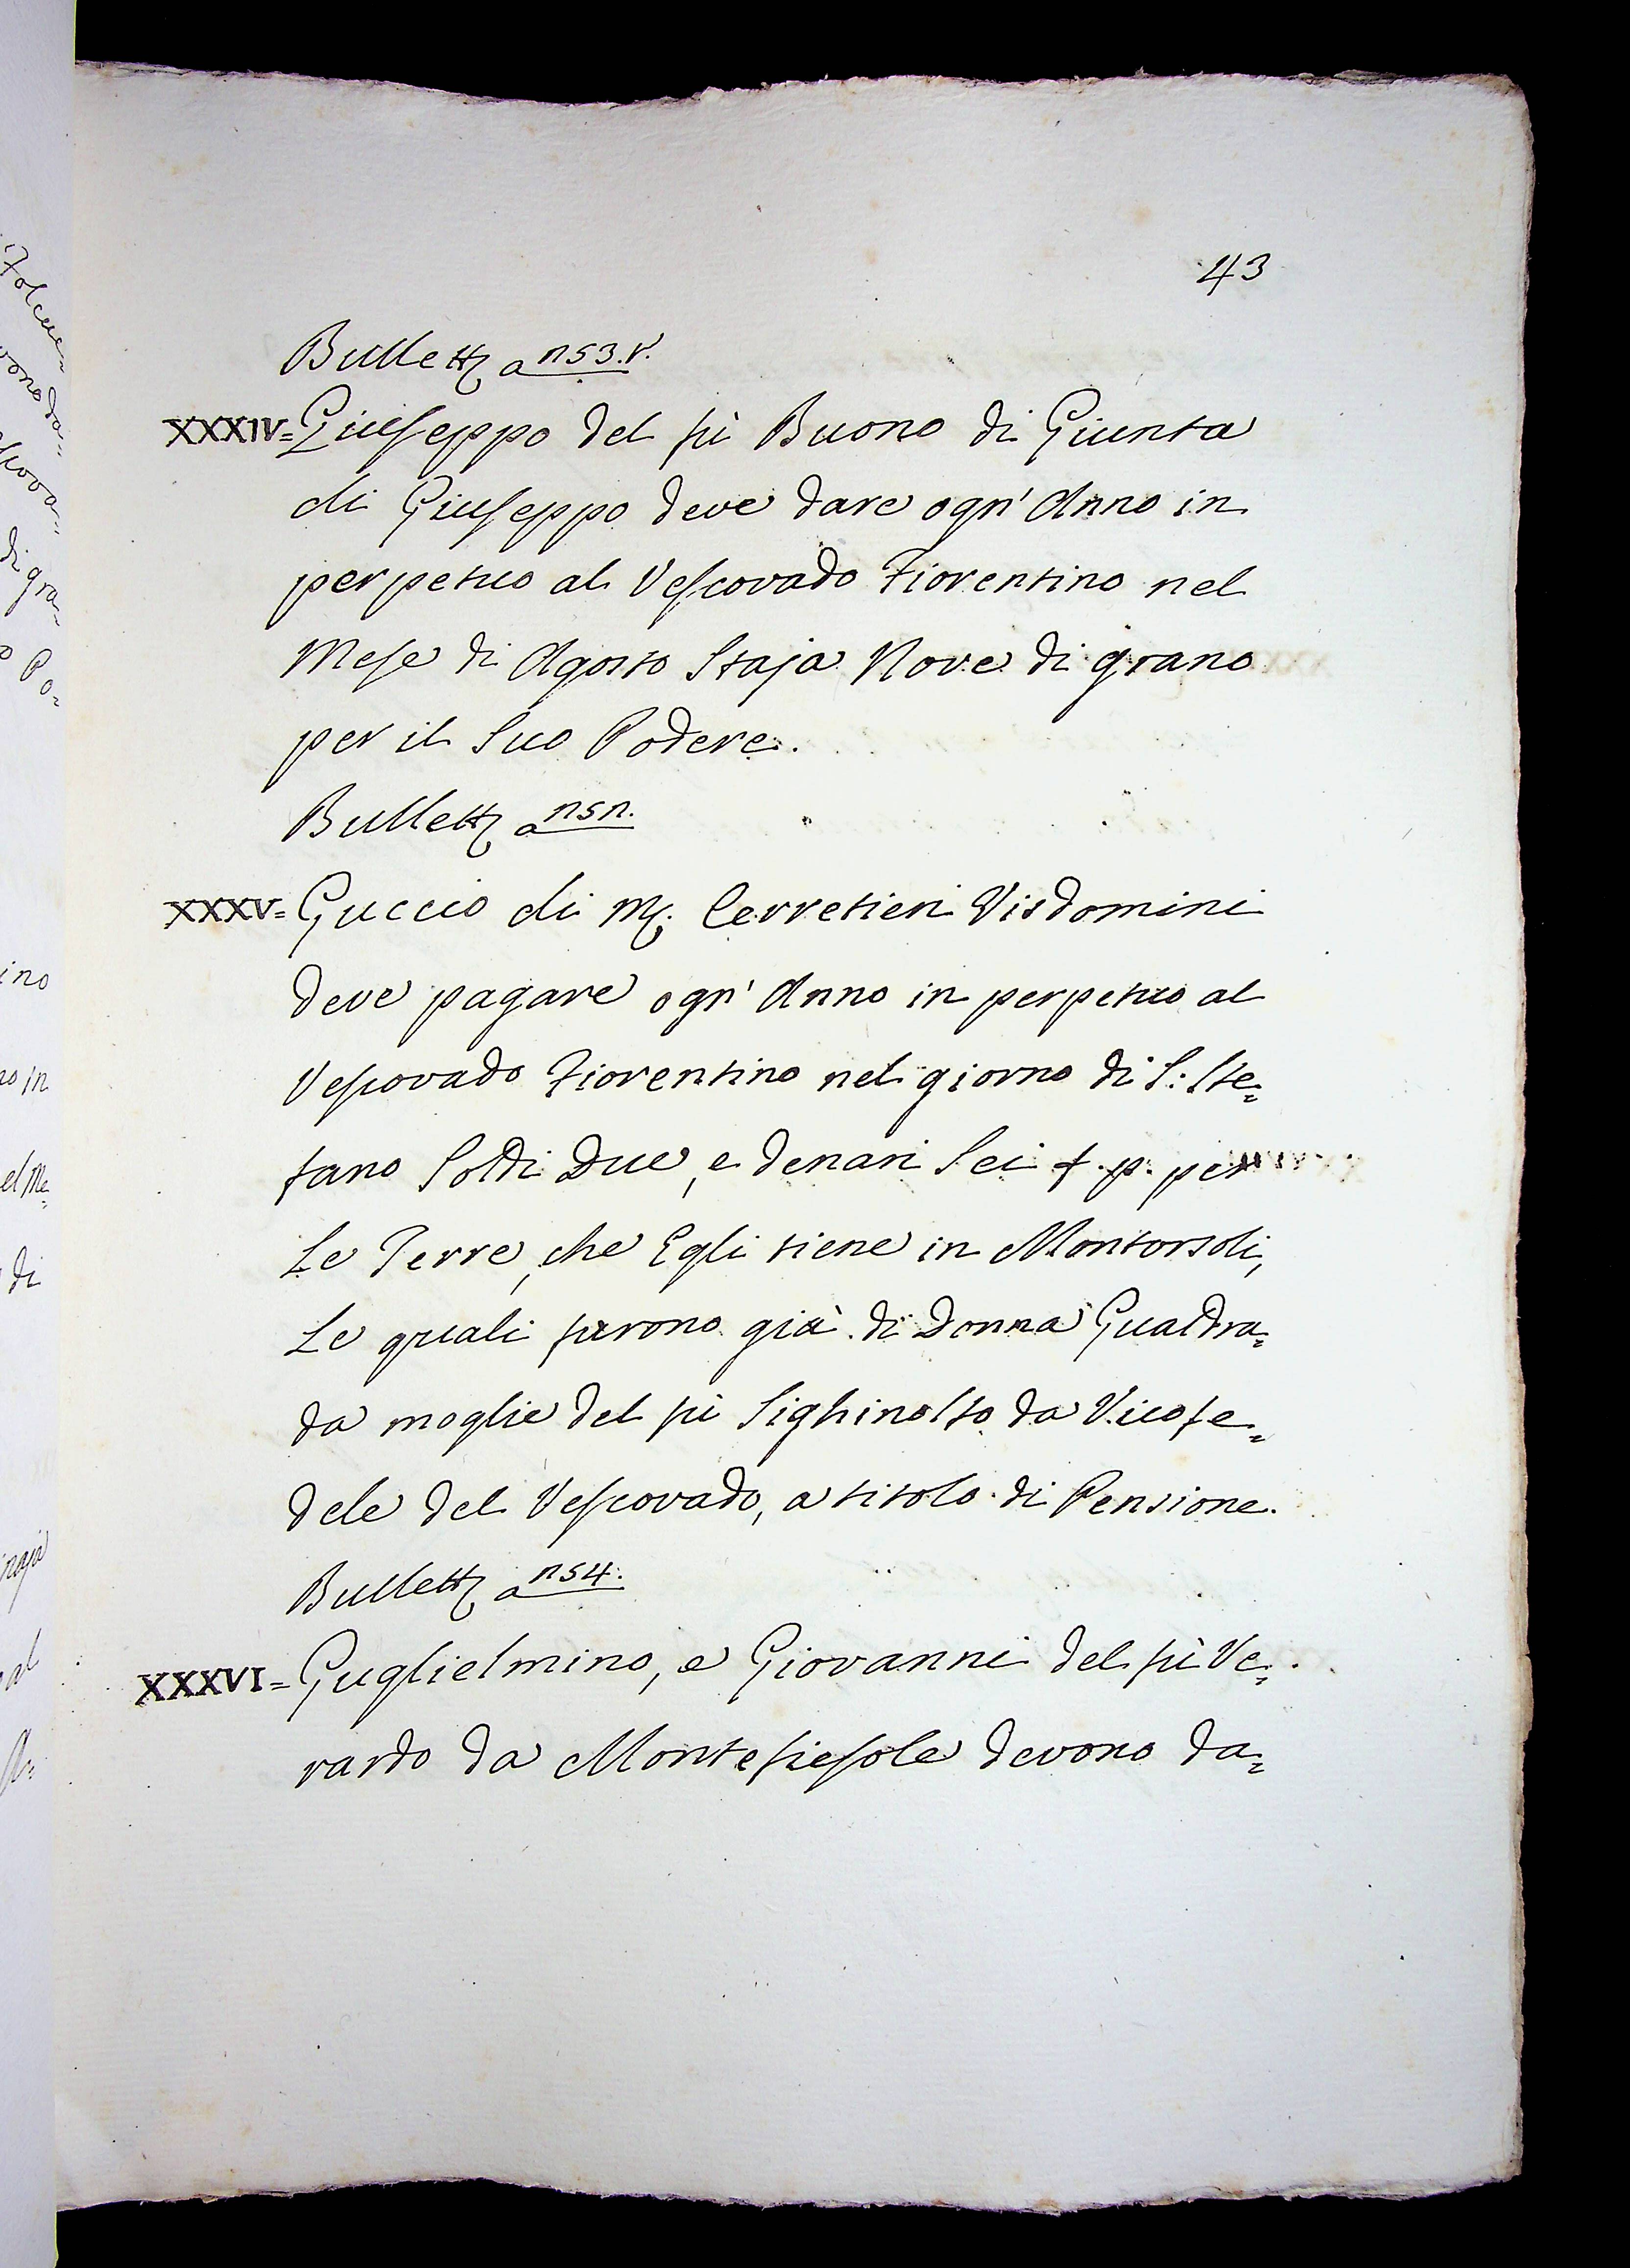 43
Bullett a n53.v.
XXXIV= Giuseppo del fù Buono di Giunta
di Giuseppo deve dare ogn' Anno in
perpetuo al Vescovado Fiorentino nel
Mese di Agosto Staja Nove di grano
per il Suo Podere.
Bullett a n5n.
XXXV= Guccio di M. Cerretieri Visdomini
deve pagare ogn' Anno in perpetuo al
Vescovado Fiorentino nel giorno di S: Ste=
fano Soldi Due, e denari Sei f. p. per
Le Terre, che Egli tiene in Montorsoli,
Le quali furono già di Donna Gualdra=
da moglie del fù Sighinolfo da Vico fe=
dele del Vescovado, a titolo di Pensione.
Bullett a n54.
XXXVI= Guglielmino, e Giovanni del fù Ve=
rardo da Montefiesole devono da=